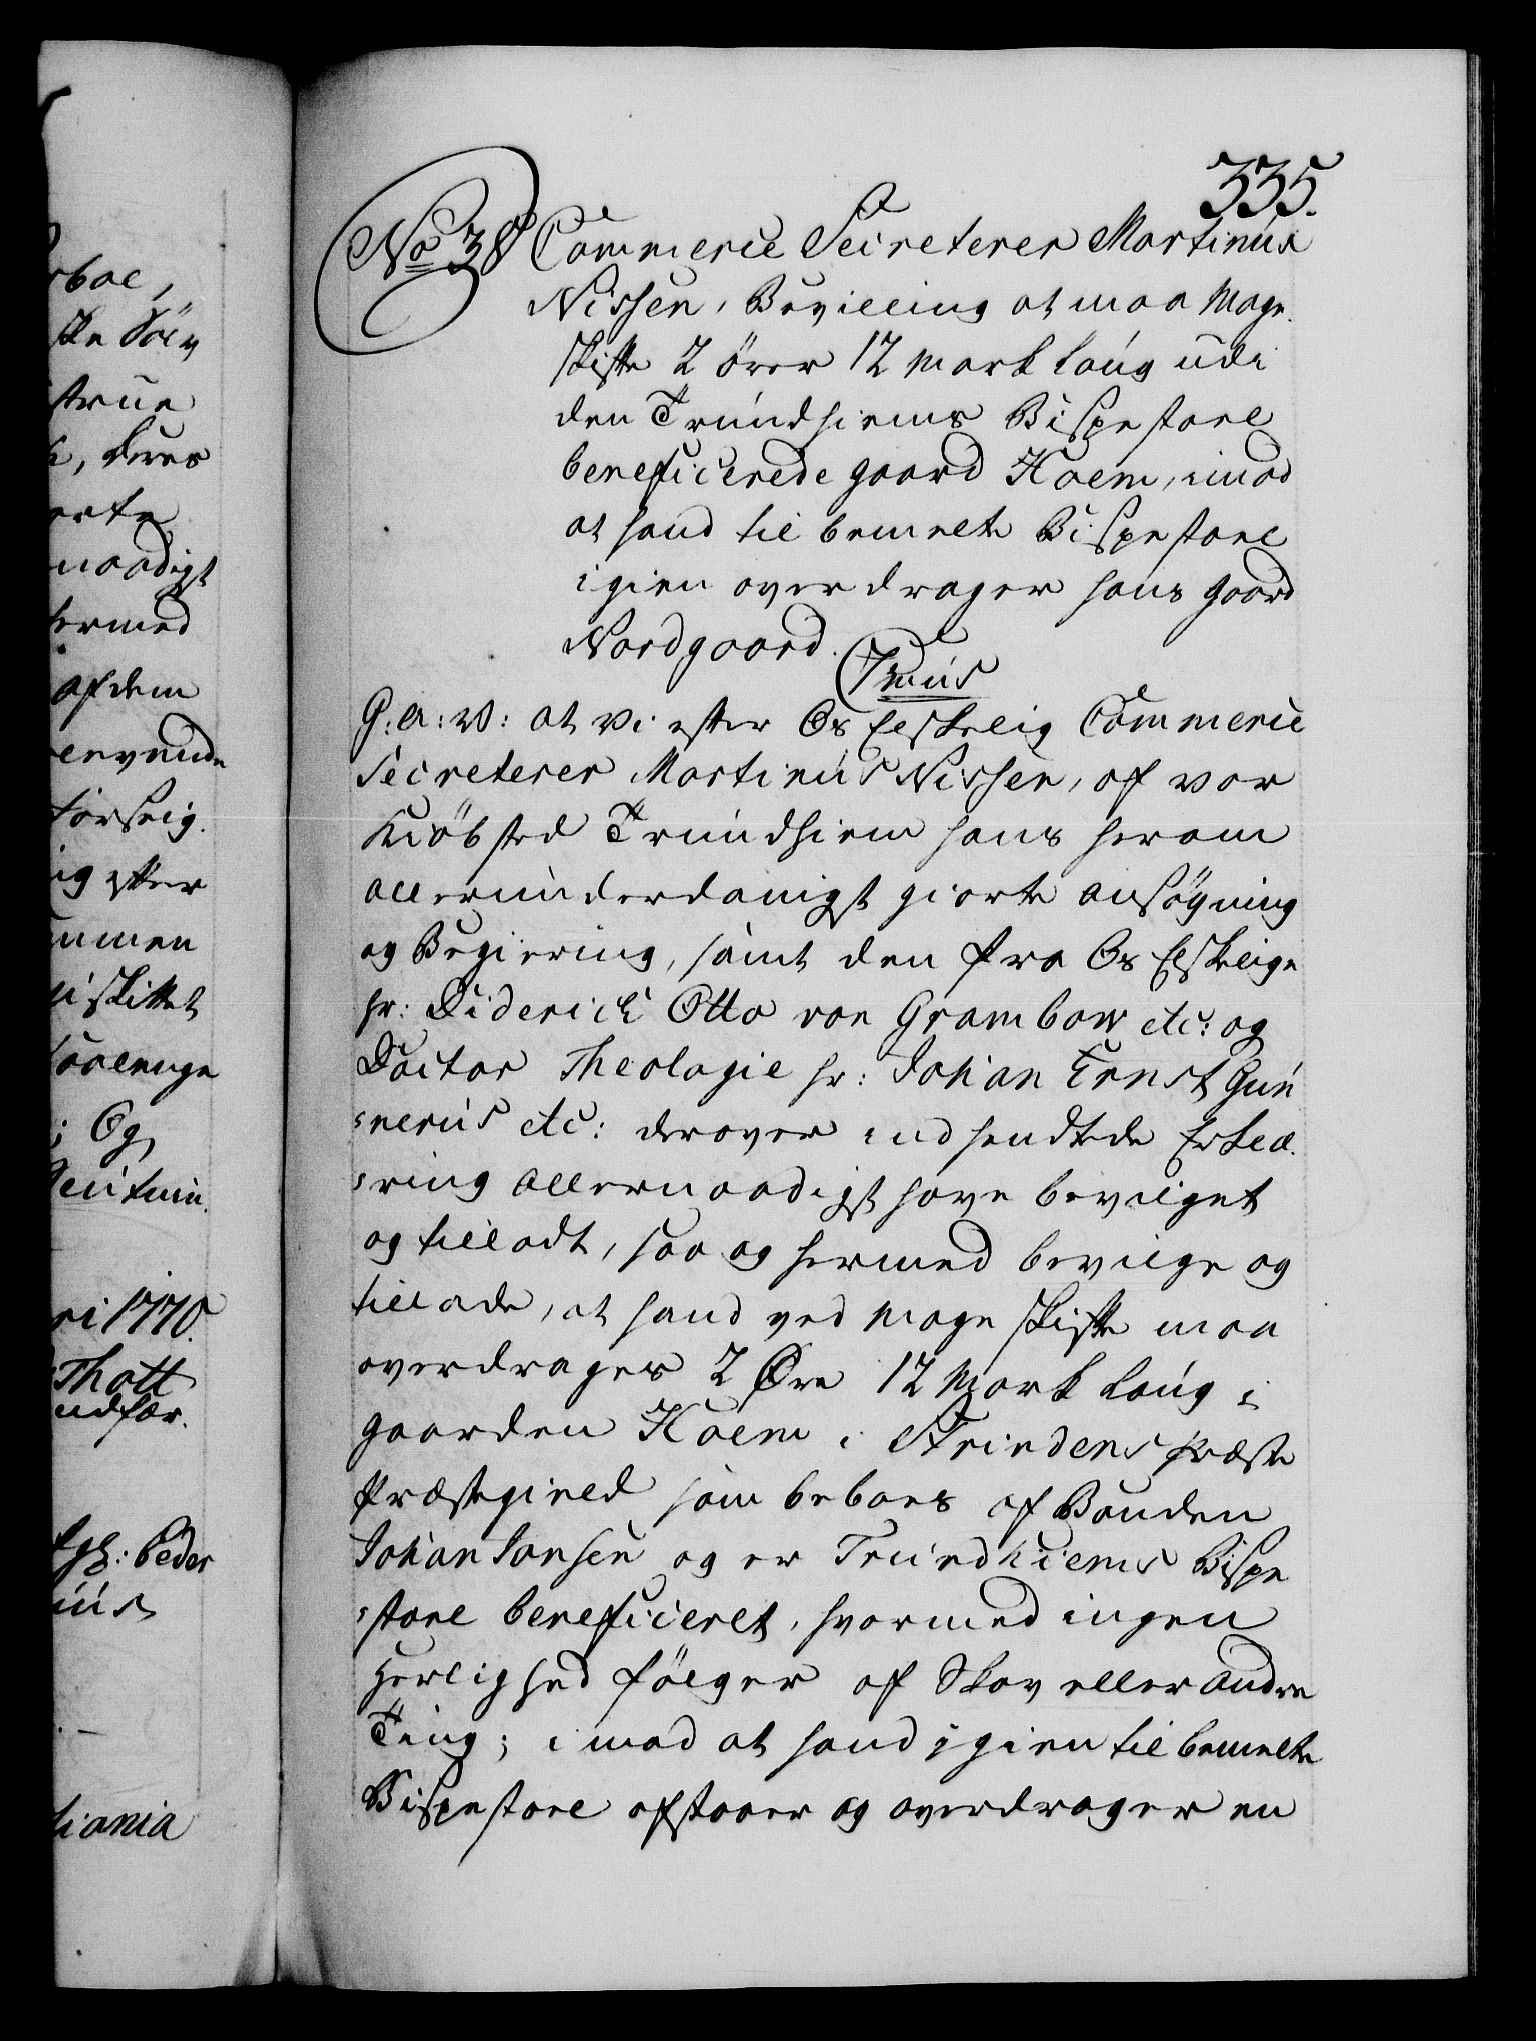 335.
No 38 Commerce Secreterer Martinus
Nissen, Bevilling at maa Mage
skifte 2 Örer 12 Mark laug udi
den Trundhiems Bispestoel
beneficerede gaard Hoem, imod
at hand til bemelte Bispestoel
igien overdrager hans gaard
Nordgaard.
G: A: V: at Vi efter Os Elskelig Commerce
Secreterer Martinus Nissen, af vor
Kiöbsted Trundhiem hans herom
allerunderdanigst giorte ansögning
og Begiering, samt den fra Os Elskelige
Hr: Diderich Otto von Grambow etc: og
Doctor Theologie Hr: Johan Ernst Gun
nerus etc: derover indsendtede Erklæ
ring allernaadigst have bevilget
og tilladt, saa og hermed bevilge og
tillade, at hand ved Mageskifte maa
overdrages 2 Öre 12 Mark laug i
gaarden Hoem i Strindens Præste
Præstegield som beboes af Bonden
Johan Jonsen og er Trundhiems Bispe
stoel beneficeret, hvormed ingen
Herlighed fölger af Skov eller andre
Ting; imod at hand igien til bemelte
Bispestoel afstaaer og overdrager en
rboe,
ske Sölv
strue
, deres
naadigst
hermed
af dem
ig efter
mmen
; Og
ri 1770.
Thott
udfær.
Peder
tiania